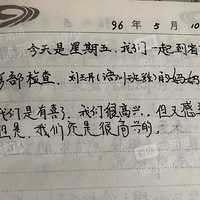 96年5月10
今天是星期五.我们一起到
部检查.刘玉开(洛川班雅)的妈妈
我们是有喜了.我们很高兴.但又感
但是,我们还是很高兴的.